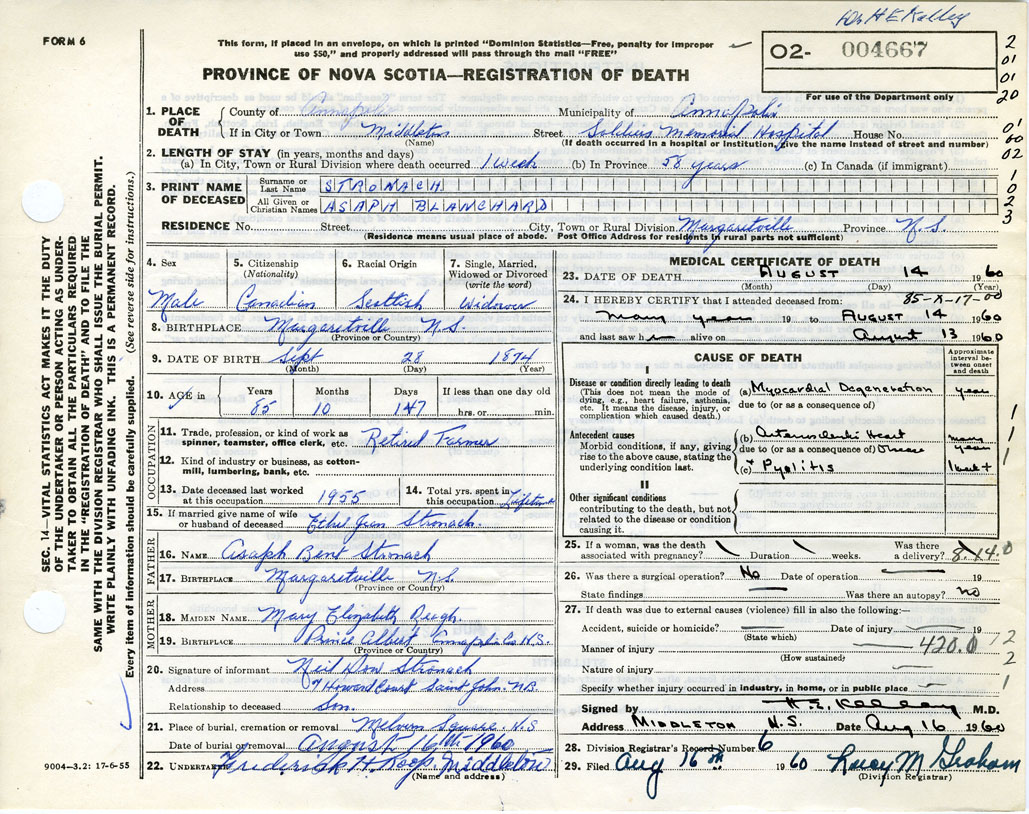 Dr H E Kelley
FORM 6
This form, if placed in an envelope, on which is printed "Dominion Statistics—Free, penalty for improper
use $50," and properly addressed will pass through the mail "FREE"
O2- 004667
For use of the Department only
PROVINCE OF NOVA SCOTIA—REGISTRATION OF DEATH
2
01
01
20
01
60
02
1
0
2
3
SEC. 14—VITAL STATISTICS ACT MAKES IT THE DUTY
OF THE UNDERTAKER OR PERSON ACTING AS UNDER-
TAKER TO OBTAIN ALL THE PARTICULARS REQUIRED
IN THE "REGISTRATION OF DEATH" AND TO FILE THE
SAME WITH THE DIVISION REGISTRAR WHO SHALL ISSUE THE BURIAL PERMIT.
WRITE PLAINLY WITH UNFADING INK. THIS IS A PERMANENT RECORD.
Every item of information should be carefully supplied. (See reverse side for instructions.)
1. PLACE OF DEATH
County of Annapolis Municipality of Annapolis
If in City or Town Middleton Street Soldiers Memorial Hospital House No.
(Name) (If death occurred in a hospital or Institution, give the name instead of street and number)
2. LENGTH OF STAY (in years, months and days)
(a) In City, Town or Rural Division where death occurred 1 week (b) In Province 58 years (c) In Canada (if immigrant)
3. PRINT NAME OF DECEASED
Surname or Last Name STRONACH
All Given or Christian Names ASAPH BLANCHARD
RESIDENCE No. Street City, Town or Rural Division Margaretville Province N.S.
(Residence means usual place of abode. Post Office Address for residents in rural parts not sufficient)
4. Sex Male
5. Citizenship (Nationality) Canadian
6. Racial Origin Scottish
7. Single, Married, Widowed or Divorced (write the word) Widower
8. BIRTHPLACE Margaretville N.S.
(Province or Country)
9. DATE OF BIRTH Sept 28 1874
(Month) (Day) (Year)
10. AGE in Years Months Days If less than one day
85 10 17 hrs. or min.
OCCUPATION
11. Trade, profession, or kind of work as spinner, teamster, office clerk, etc. Retired Farmer
12. Kind of industry or business, as cotton-mill, lumbering, bank, etc.
13. Date deceased last worked at this occupation. 1955
14. Total yrs. spent in this occupation Lifetime
15. If married give name of wife or husband of deceased Ethel Jean Stronach.
FATHER
16. NAME Asaph Bent Stronach
17. BIRTHPLACE Margaretville N.S.
(Province or Country)
MOTHER
18. MAIDEN NAME Mary Elizabeth
19. BIRTHPLACE Prince Albert Annapolis Co. N.S.
(Province or Country)
20. Signature of informant Neil Dow Stronach
Address 7 Howard Court Saint John N.B.
Relationship to deceased Son.
21. Place of burial, cremation or removal Melvern Square N.S
Date of burial or removal August 16th 1960
22. UNDERTAKER Frederick H. Roop, Middleton
(Name and address)
9004—3.2: 17-6-55
MEDICAL CERTIFICATE OF DEATH
23. DATE OF DEATH AUGUST 14 1960
(Month) (Day) (Year)
85-X-17-00
24. I HEREBY CERTIFY that I attended deceased from:
many years 19 to AUGUST 14 1960
and last saw him alive on August 13 1960
CAUSE OF DEATH
Approximate interval between onset and death
I
Disease or condition directly leading to death
(This does not mean the mode of dying, e.g., heart failure, asthenia, etc. It means the disease, injury, or complication which caused death.)
(a) Myocardial Degeneration years
due to (or as a consequence of)
Antecedent causes
Morbid conditions, if any, giving rise to the above cause, stating the underlying condition last.
(b) Heart Disease many years
due to (or as a consequence of)
(c) Pyelitis 1 week +
II
Other significant conditions
contributing to the death, but not related to the disease or condition causing it.
1
1
1
25. If a woman, was the death associated with pregnancy? Duration weeks. Was there a delivery?
26. Was there a surgical operation? No Date of operation 19
State findings Was there an autopsy? no
27. If death was due to external causes (violence) fill in also the following:—
Accident, suicide or homicide? Date of injury 19
(State which)
Manner of injury 420.0
(How sustained)
Nature of injury
Specify whether injury occurred in industry, in home, or in public place
12
2
1
Signed by H. E. Kelley M.D.
Address MIDDLETON N.S. Date Aug 16 1960
28. Division Registrar's Record Number 6
29. Filed Aug 16th 1960 Lucy M Graham
(Division Registrar)